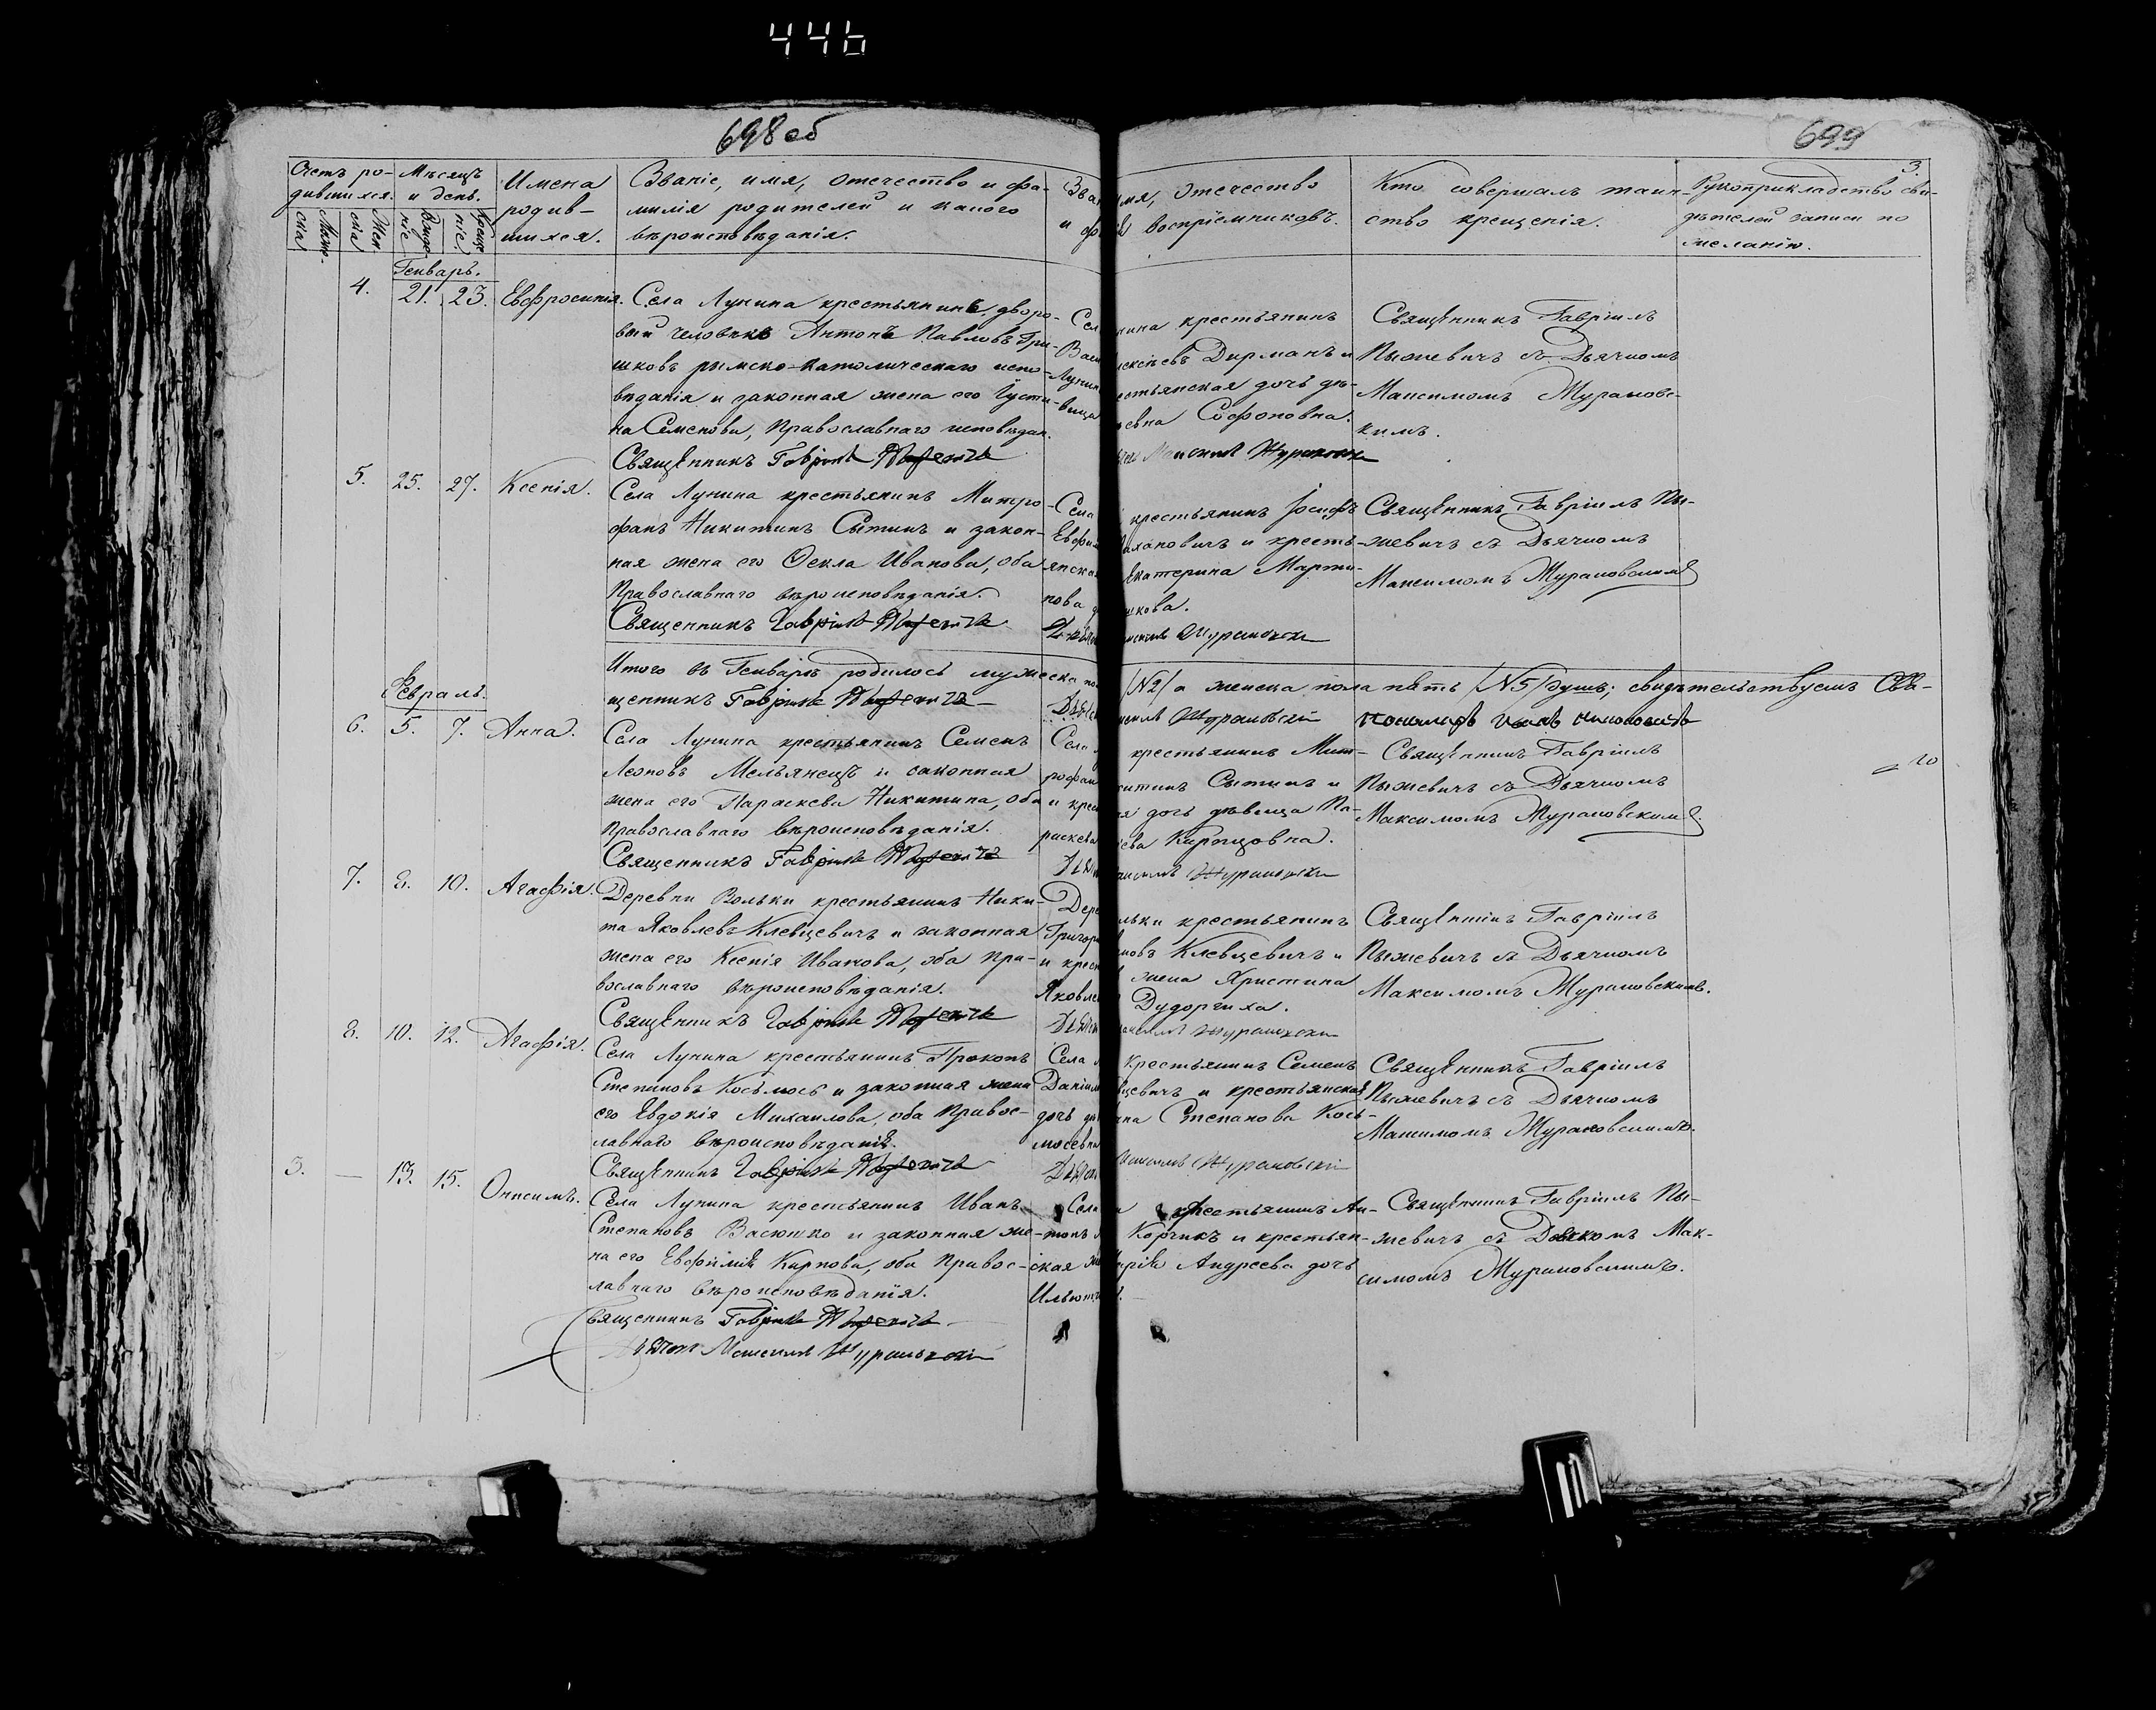 446
698 об
699
3.
Счетъ ро-
дившихся.
Муже-
ска
Жен-
ска
Мѣсяцъ
и день.
Рожде-
ніе
Креще-
ніе
Имена
родив-
шихся.
Званіе, имя, отечество и фа-
милія родителей и какого
вѣроисповѣданія.
Зва имя, отечество
и фа воспріемниковъ.
Кто совершалъ таин-
ство крещенія.
Рукоприкладство сви-
дѣтелей записи по
желанію.
Генварь.
4.
21. 23.
Евфросинія.
Села Лунина крестьянинъ дворо-
вый человѣкъ Антонъ Павловъ Гри-
шковъ римско-католическаго испо-
вѣданія и законная жена его Іусти-
на Семенова, Православнаго исповѣдан.
Священникъ Гавріилъ Пыжевичъ
Сел нина крестьянинъ
Васи лексѣевъ Дирманъ и
Лунин естьянская дочь дѣ-
вица евна Софоновна.
Максимъ Журановскій
Священникъ Гавріилъ
Пыжевичъ съ Дьячкомъ
Максимомъ Журановс-
кимъ.
5. 25. 27.
Ксенія.
Села Лунина крестьянинъ Митро-
фанъ Никитинъ Сытинъ и закон-
ная жена его Ѳекла Иванова, оба
Православнаго вѣроисповѣданія.
Священникъ Гавріилъ Пыжевичъ
Села крестьянинъ Іосифъ
Евфим ахановичъ и кресть-
янская Екатерина Марти-
нова шкова.
Журановскій
Священникъ Гавріилъ Пы-
жевичъ съ Дьячкомъ
Максимомъ Журановскимъ
Итого въ Генварѣ родилось мужеска по /№2/ а женска пола пять /№5/ душъ; свидѣтельствуемъ Свя-
щенникъ Гавріилъ Пыжевичъ Журановскій
Февраль.
6. 5. 7.
Анна.
Села Лунина крестьянинъ Семенъ
Леоновъ Мельянецъ и законная
жена его Параскева Никитина, оба
Православнаго вѣроисповѣданія.
Священникъ Гавріилъ Пыжевичъ
Села крестьянинъ Мит-
рофан китинъ Сытинъ и
и крес я дочь дѣвица Па-
раскева ева Карпцовна.
Журановскій
Священникъ Гавріилъ
Пыжевичъ съ Дьячкомъ
Максимомъ Журановскимъ
7. 8. 10.
Агафія.
Деревни Вольки крестьянинъ Ники-
та Яковлевъ Клевцевичъ и законная
жена его Ксенія Иванова, оба Пра-
вославнаго вѣроисповѣданія.
Священникъ Гавріилъ Пыжевичъ
Дере льки крестьянинъ
Григор мовъ Клевцевичъ и
и крес жена Христина
Яковле Дудорчиха.
Журановскій
Священникъ Гавріилъ
Пыжевичъ съ Дьячкомъ
Максимомъ Журановскимъ.
8. 10. 12.
Агафія.
Села Лунина крестьянинъ Прокопъ
Степановъ Косьмосъ и законная жена
его Евдокія Михаилова, оба Правос-
лавнаго вѣроисповѣданія.
Священникъ Гавріилъ Пыжевичъ
Села крестьянинъ Семенъ
Даніил вцевичъ и крестьянская
дочь дѣ на Степанова Кось-
мосевна
Максимъ Журановскій
Священникъ Гавріилъ
Пыжевичъ съ Дьячкомъ
Максимомъ Журановскимъ.
3. — 13. 15.
Онисимъ.
Села Лунина крестьянинъ Иванъ
Степановъ Васюшко и законная же-
на его Евфимія Карпова, оба Правос-
лавнаго вѣроисповѣданія.
Священникъ Гавріилъ Пыжевичъ
Максимъ Журановскій
Села крестьянинъ Ан-
тонъ Корчикъ и крестьян-
ская Марія Андреева дочь
Священникъ Гавріилъ Пы-
жевичъ съ Дьякомъ Мак-
симомъ Журановскимъ.